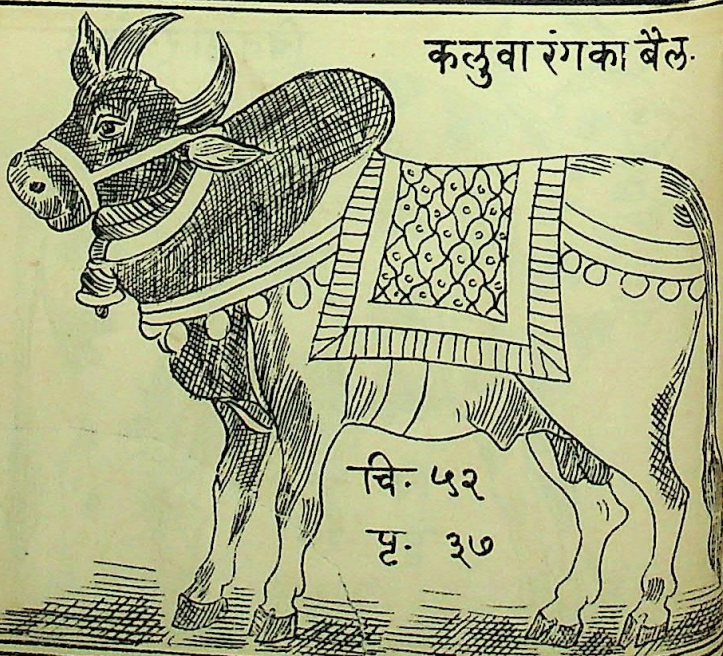 कलुवा रंग का बैल.
चि. ५२
पृ. ३७